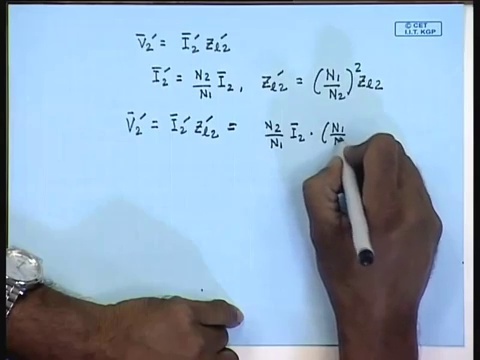 © CET
I.I.T. KGP
V̄₂′ = Ī₂′ Zℓ₂′
Ī₂′ = N₂/N₁ Ī₂, Zℓ₂′ = (N₁/N₂)² Zℓ₂
V̄₂′ = Ī₂′ Zℓ₂′ = N₂/N₁ Ī₂ · (N₁/N